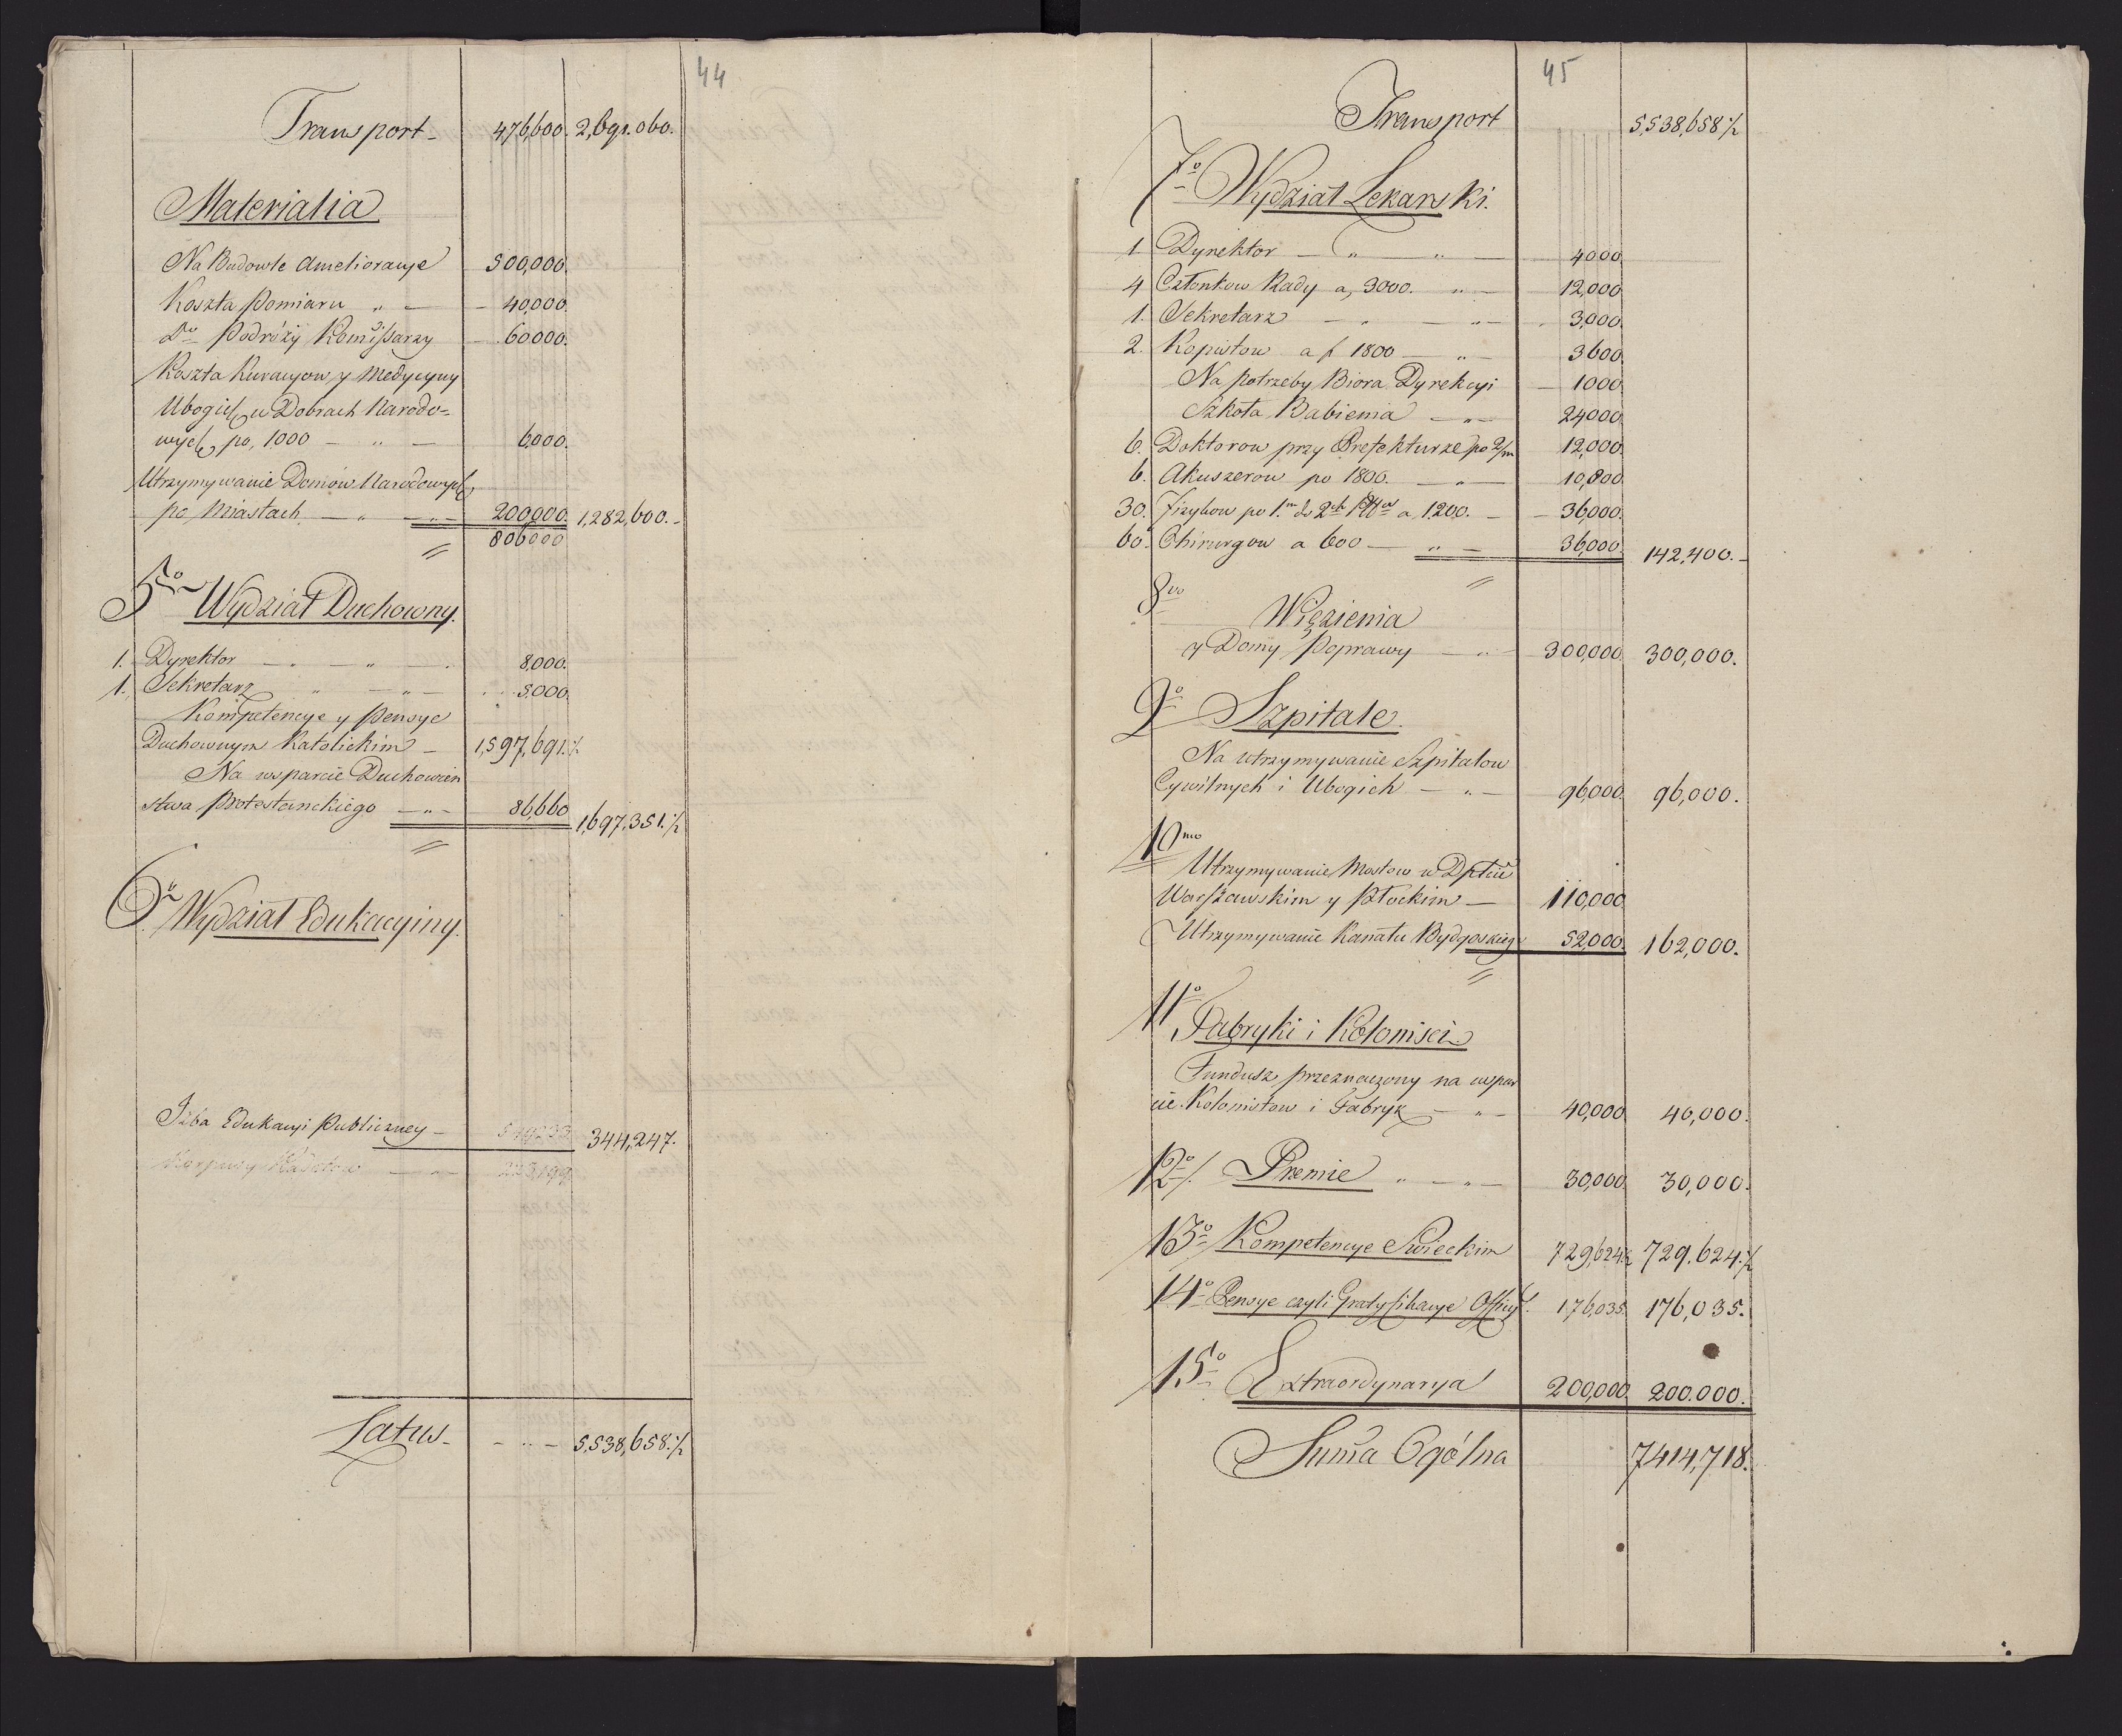 44
Transport 476,600. 2,691.060.
Materialia
Na Budowle Amelioracye 500,000.
Koszta Pomiaru „ — 40,000.
Do Podróży Komissarzy 60000.
Koszta Kuracyow y Medycyny
Ubogich w Dobrach Narodo-
wych po, 1000 — „ — 6,000.
Utrzymywanie Domów Narodowych
po Miastach — „ — 200,000. 1,282,600.-
806000
5o Wydział Duchowny.
1. Dyrektor — „ — „ — 8,000.
1. Sekretarz „ — „ — 5.000.
Kompetencye y Pensye
Duchownym Katolickim — 1,597,691.½
Na wsparcie Duchowień
stwa Protestanckiego — „ — 86,660 1,697,351.½
6o Wydział Edukacyiny.
Izba Edukacyi Publiczney — 344,247.
Latus — „ — 5,538,658.½
45
Transport 5,538,658½
7o Wydział Lekarski.
1. Dyrektor — „ — „ — 4000
4 Członkow Rady a, 3000. „ — 12,000
1. Sekretarz — „ — „ — 3,000.
2. Kopistow a f 1800 — „ — 3600
Na potrzeby Biora Dyrekcyi — 1000
Szkoła Babienia — „ 24000
6. Doktorow przy Prefekturze po 2/m 12,000.
6. Akuszerow po 1800. — „ — 10,800
30. Fizykow po 1.m do 2ch a 1200. — 36,000.
60. Chirurgow a 600 — „ — 36,000. 142,400.-
8vo
Więzienia
y Domy Poprawy — „ — 300,000 300,000.
9o Szpitale.
Na utrzymywanie Szpitalow
Cywilnych i Ubogich — „ — 96,000 96,000.
10mo
Utrzymywanie Mostow w Dptcie
Warszawskim y Płockim — 110,000
Utrzymywanie Kanału Bydgoskieg 52,000. 162,000.
11o
Fabryki i Kolonisci
Fundusz przeznaczony na wspar
cie Kolonistow i Fabryk — „ — 40,000 40,000.
12o/. Premie „ — „ — 30,000 30,000.
13o Kompetencye Swieckim 729,624½ 729.624.½
14o Pensye czyli Gratyfikacye Officy. 176,035. 176,035.
15o Extraordynarya 200,000 200.000.
Suma Ogólna 7414,718.